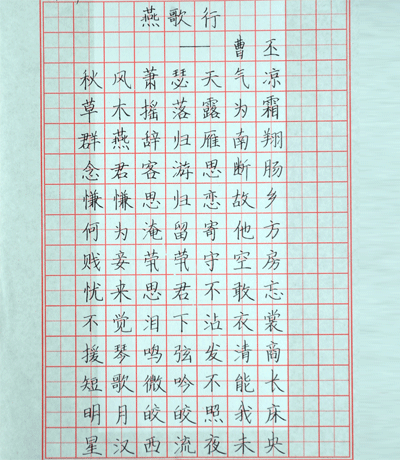 燕歌行
——曹丕
秋风萧瑟天气凉
草木摇落露为霜
群燕辞归雁南翔
念君客游思断肠
慊慊思归恋故乡
何为淹留寄他方
贱妾茕茕守空房
忧来思君不敢忘
不觉泪下沾衣裳
援琴鸣弦发清商
短歌微吟不能长
明月皎皎照我床
星汉西流夜未央